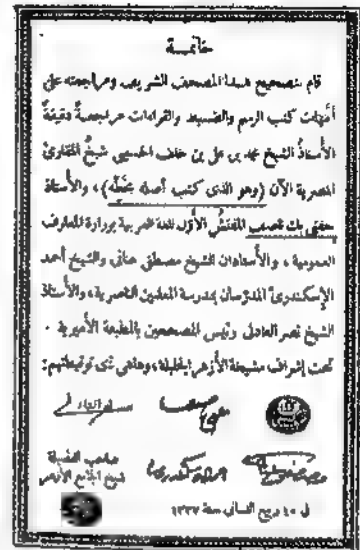 خاتمة
قام بتصحيح هذا المصحف الشريف ومراجعته على
أمّهات كتب الرسم والضبط والقراءات مراجعةً دقيقةً
الأستاذُ الشيخ محمد بن علي بن خلف الحسيني شيخُ المقارئ
المصرية الآن (وهو الذي كتب أصله بخطّه)، والأستاذ
حفني بك ناصف المفتش الأوّل للغة العربية بوزارة المعارف
العمومية، والأستاذان الشيخ مصطفى عناني والشيخ أحمد
الإسكندريّ المدرّسان بمدرسة المعلمين الناصرية، والأستاذ
الشيخ نصر العادلي رئيس المصححين بالمطبعة الأميرية
تحت إشراف مشيخة الأزهر الجليلة، وهاهي ذي توقيعاتهم:
صاحب الفضيلة
شيخ الجامع الأزهر
في ١٠ ربيع الثاني سنة ١٣٣٧